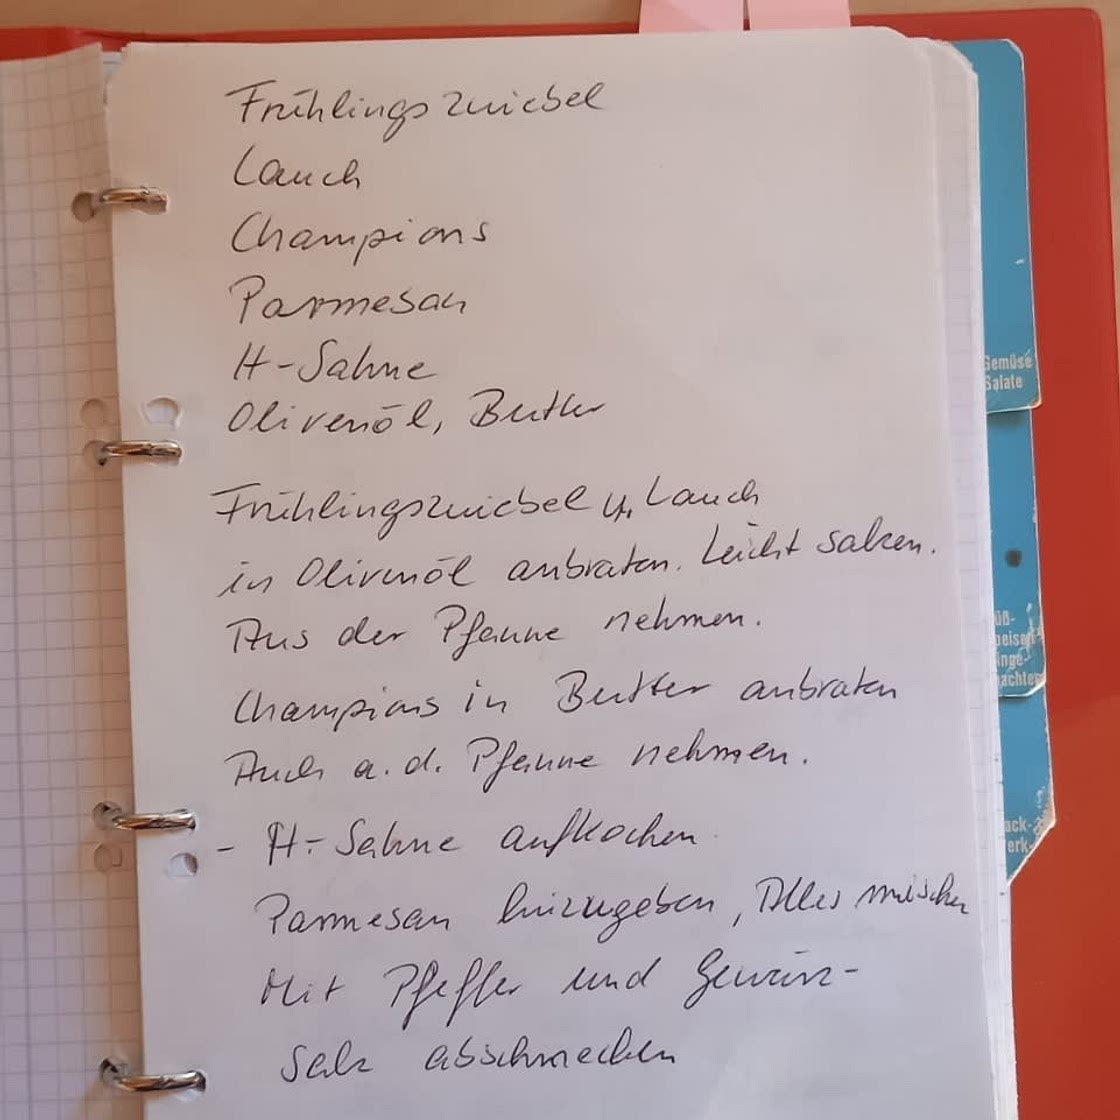 Frühlingszwiebel
Lauch
Champions
Parmesan
H-Sahne
Olivenöl, Butter
Frühlingszwiebel u. Lauch
in Olivenöl anbraten. Leicht salzen.
Aus der Pfanne nehmen.
Champions in Butter anbraten
Auch a. d. Pfanne nehmen.
- H-Sahne aufkochen
Parmesan hinzugeben, Alles mischen
Mit Pfeffer und Gewürz-
salz abschmecken
Gemüse
Salate